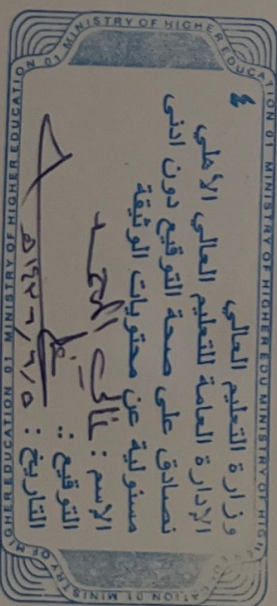 MINISTRY OF HIGHER EDUCATION 01 MINISTRY OF HIGHER EDUCATION 01
٤
وزارة التعليم العالي
الإدارة العامة للتعليم العالي الأهلي
نصادق على صحة التوقيع دون ادنى
مسئولية عن محتويات الوثيقة
الإسم :
التوقيع :
التاريخ :